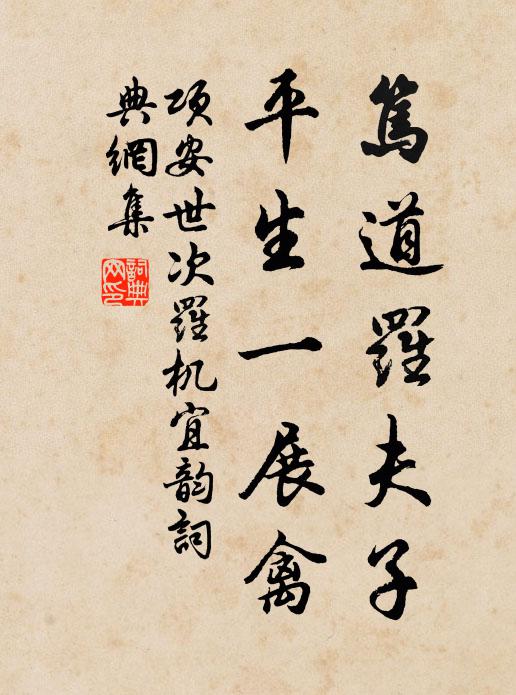 篤道羅夫子
平生一展禽
項安世次羅机宜韵詞
典網集
詞典
网印